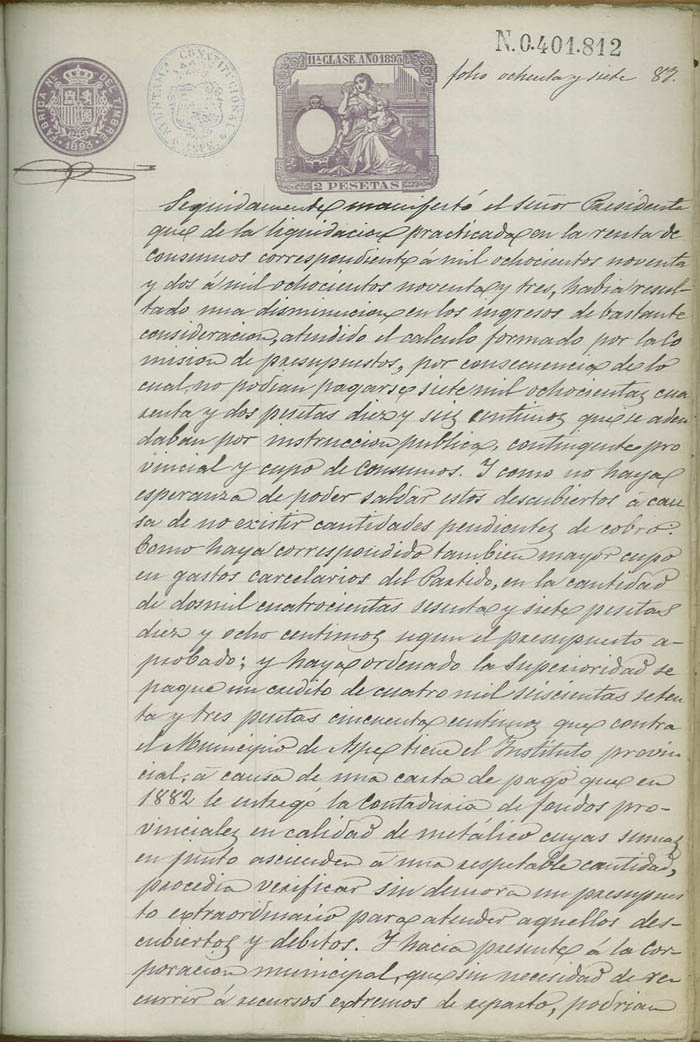 N.0.401.812
11ª CLASE. AÑO 1893
2 PESETAS
FABRICA NL. DEL TIMBRE
1892
AYUNTAMTO CONSTITUCIONAL
ASPE
folio ochenta y siete 87.
Seguidamente manifestó el señor Presidente
que de la liquidacion practicada en la renta de
consumos correspondiente á mil ochocientos noventa
y dos á mil ochocientos noventa y tres, habia resul-
tado una disminucion en los ingresos de bastante
consideracion, atendido el calculo formado por la Co
mision de presupuestos, por consecuencia de lo
cual no podian pagarse siete mil ochocientas cua
renta y dos pesetas diez y seis centimos que se adeu
daban por instruccion publica, contingente pro
vincial y cupo de consumos. Y como no haya
esperanza de poder saldar estos descubiertos á cau
sa de no existir cantidades pendientes de cobro.
Como haya correspondido tambien mayor cupo
en gastos carcelarios del Partido, en la cantidad
de dos mil cuatrocientas sesenta y siete pesetas
diez y ocho centimos segun el presupuesto a-
probado; y haya ordenado la Superioridad se
pague un credito de cuatro mil seiscientas seten
ta y tres pesetas cincuenta centimos que contra
el Municipio de Aspe tiene el Instituto provin
cial, á causa de una carta de pago que en
1882 le entregó la Contaduria de fondos pro-
vinciales en calidad de metálico cuyas sumas
en junto ascienden á una respetable cantidad,
procedia verificar sin demora un presupues
to extraordinario para atender aquellos des-
cubiertos y debitos. Y hacia presente á la Cor-
poracion municipal, que sin necesidad de re
currir á recursos extremos de reparto, podrian